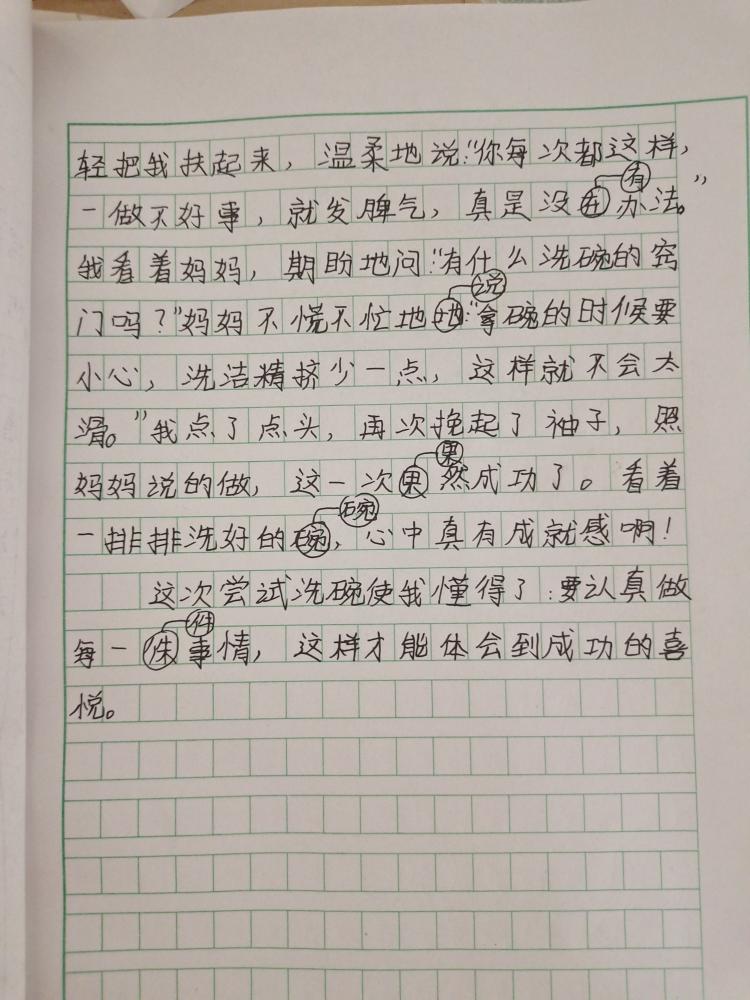 轻把我扶起来，温柔地说：“你每次都这样，
一做不好事，就发脾气，真是没有办法。”
我看着妈妈，期盼地问：“有什么洗碗的窍
门吗？”妈妈不慌不忙地说：“拿碗的时候要
小心，洗洁精挤少一点，这样就不会太
滑。”我点了点头，再次挽起了袖子，照
妈妈说的做，这一次果然成功了。看着
一排排洗好的碗，心中真有成就感啊！
这次尝试洗碗使我懂得了：要认真做
每一件事情，这样才能体会到成功的喜
悦。